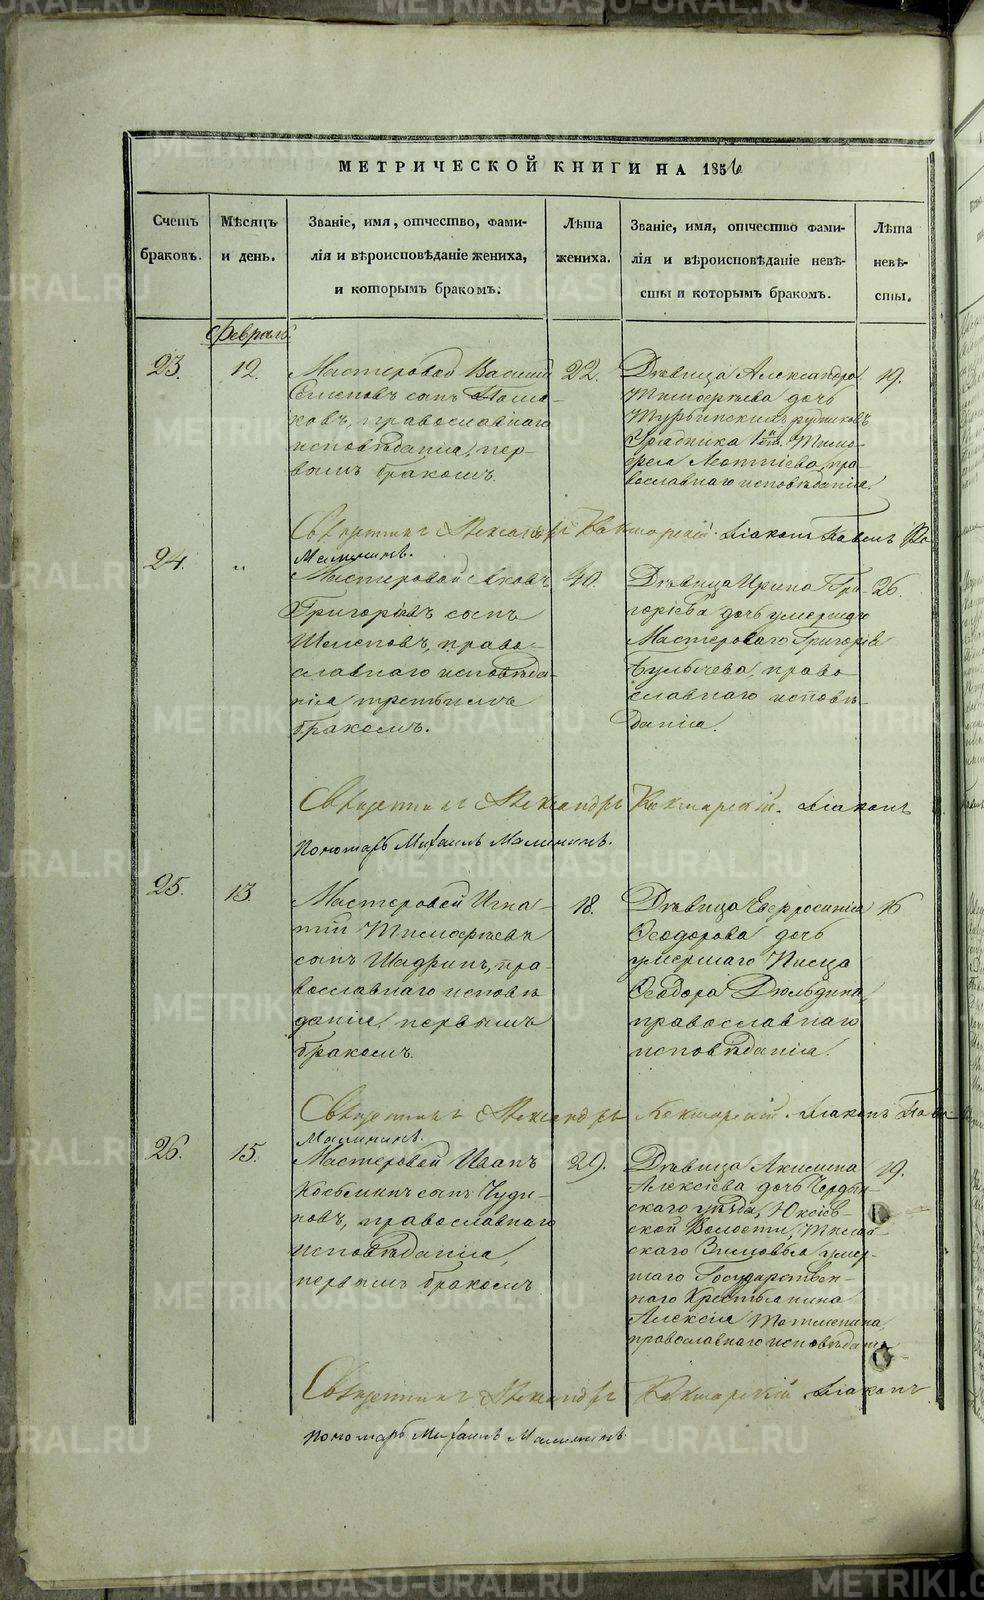 МЕТРИЧЕСКОЙ КНИГИ НА 1856
Счетъ браковъ.
Мѣсяцъ и день.
Званіе, имя, отчество, фами-
лія и вѣроисповѣданіе жениха,
и которымъ бракомъ.
Лѣта жениха.
Званіе, имя, отчество фами-
лія и вѣроисповѣданіе невѣ-
сты и которымъ бракомъ.
Лѣта невѣ-
сты.
Февраль
23.
12.
Мастеровой Василій
сынъ
ковъ, православнаго
исповѣданія, пер-
вымъ бракомъ.
22.
Дѣвица Александра
Тимофѣева дочь
Турьинскихъ рудниковъ
Урядника Тимо-
фея Леонтіева, пра-
вославнаго исповѣданія.
19.
Священникъ Александръ Діаконъ Павелъ
Малининъ.
24.
"
Мастеровой Яковъ
Григорьевъ сынъ
Шелеповъ, право-
славнаго исповѣда-
нія третьимъ
бракомъ.
40.
Дѣвица Ирина Гри-
горіева дочь умершаго
Мастероваго Григорія
Булычева, право
славнаго исповѣ-
данія.
26.
Священникъ Александръ Діаконъ
Пономарь Михаилъ Малининъ.
25.
13.
Мастеровой Игна-
тій Тимофѣевъ
сынъ Шадринъ, пра-
вославнаго исповѣ
данія, первымъ
бракомъ.
18.
Дѣвица Евфросинія
Ѳеодорова дочь
умершаго Писца
Ѳеодора Дюльдина
православнаго
исповѣданія.
16
Священникъ Александръ Діаконъ
Малининъ.
26.
15.
Мастеровой Иванъ
Козьминъ сынъ Чуди-
новъ, православнаго
исповѣданія,
первымъ бракомъ
29.
Дѣвица Акилина
Алексіева дочь Чердын-
скаго уѣзда, Юксіев-
ской Волости,
скаго Зимовья умер-
шаго Государствен-
наго Крестьянина
Алексія
православнаго исповѣданія
19.
Священникъ Александръ Діаконъ
Пономарь Михаилъ Малининъ
METRIKI.GASO-URAL.RU